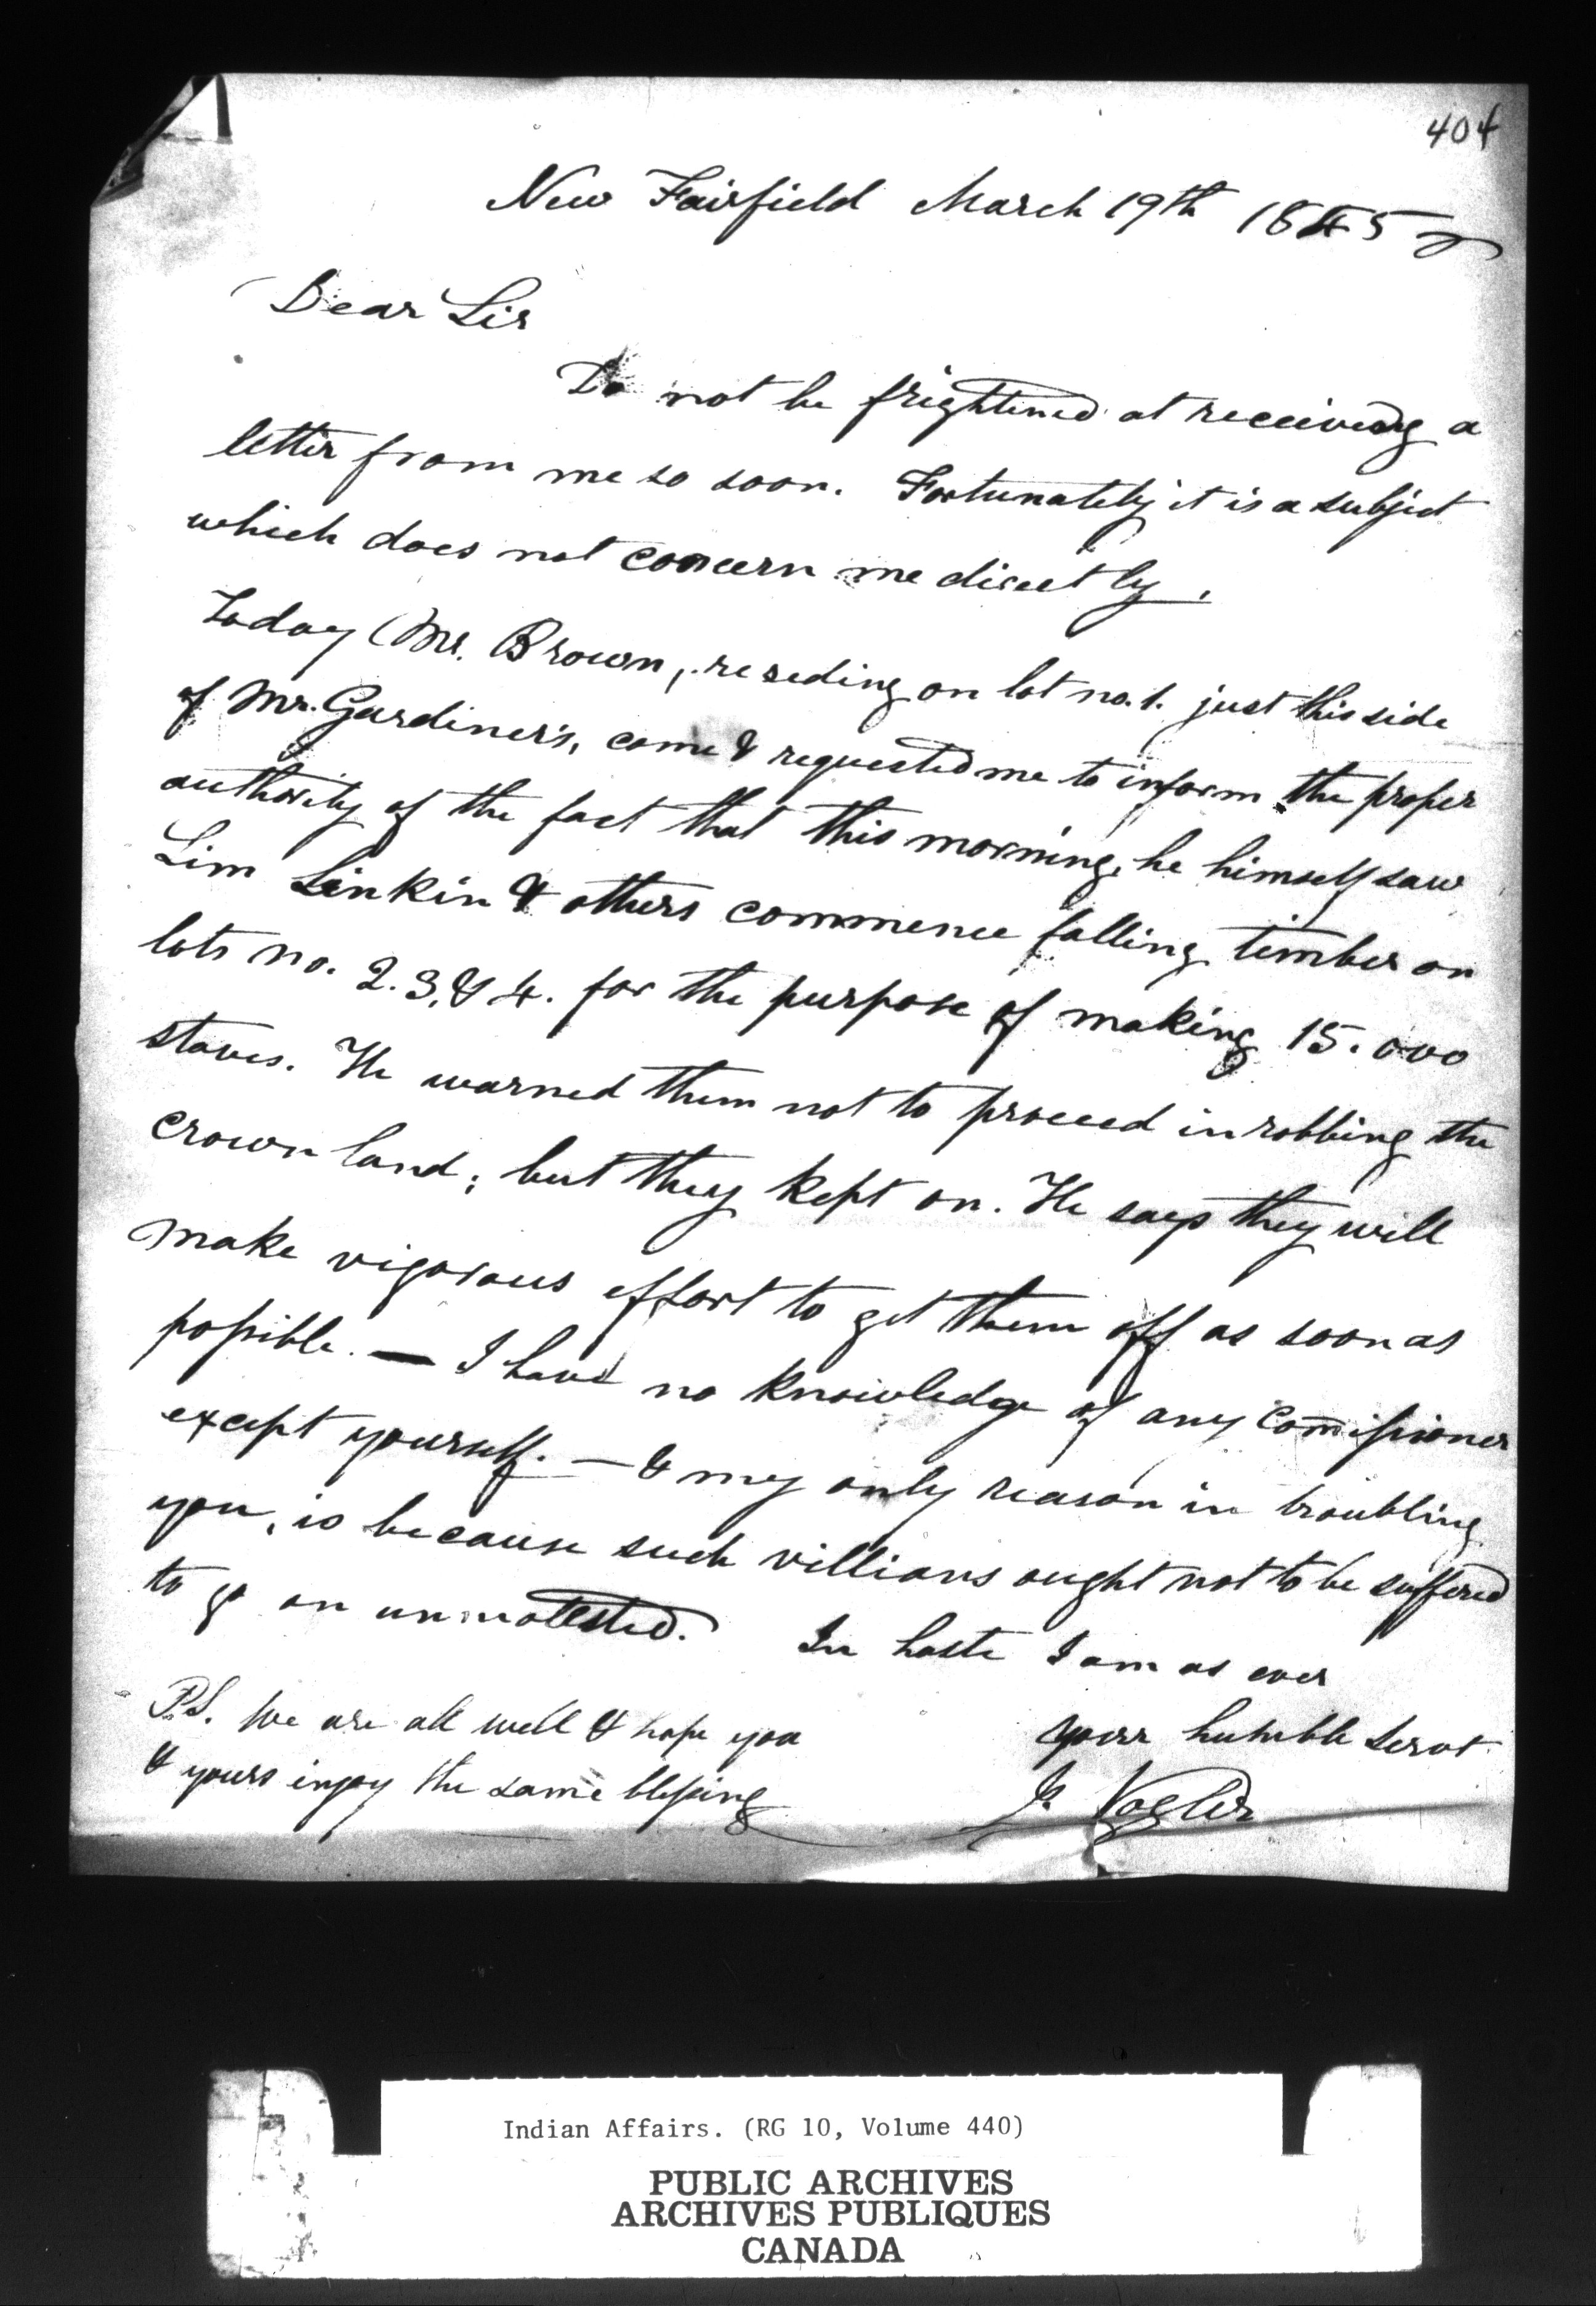 404
New Fairfield March 19th 1845
Dear Sir
Do not be frightened at receiving a
letter from me so soon. Fortunately it is a subject
which does not concern me directly.
Today Mr. Brown, reseding on lot no. 1. just this side
of Mr. Gardiner's, came & requested me to inform the proper
authority of the fact that this morning, he himself saw
Sim Linkin & others commence falling timber on
lots no. 2. 3. & 4. for the purpose of making 15.000
staves. He warned them not to proceed in robbing the
crown land; but they kept on. He says they will
make vigorous effort to get them off as soon as
possible. — I have no knowledge of any Com̅issioner
except yourself. — & my only reason in troubling
you, is because such villians ought not to be suffered
to go on unmolested. In haste I am as ever
your humble servt
J. Vogler
P.S. We are all well & hope you
& yours enjoy the same blessing
Indian Affairs. (RG 10, Volume 440)
PUBLIC ARCHIVES
ARCHIVES PUBLIQUES
CANADA